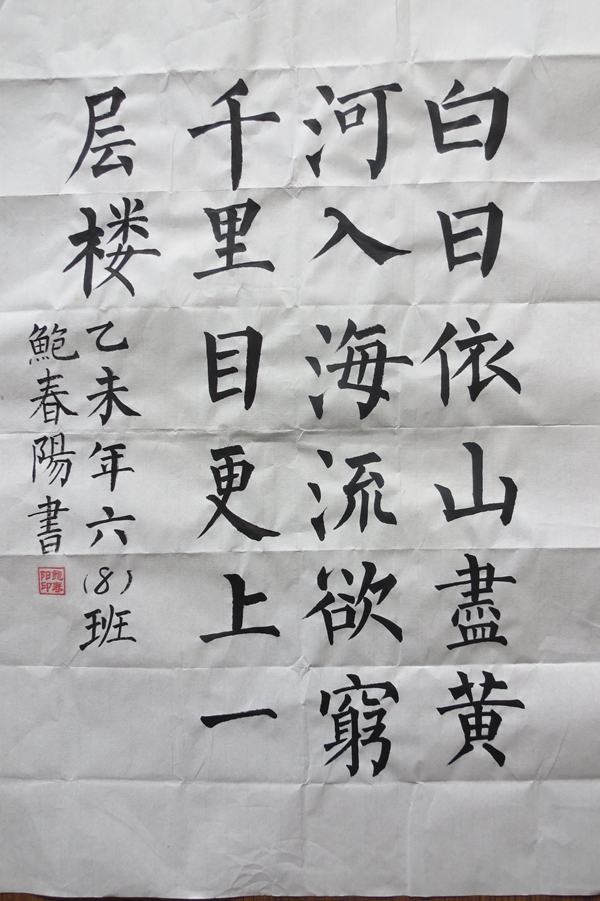 白日依山盡黄
河入海流欲窮
千里目更上一
层楼
乙未年六(8)班
鮑春陽書